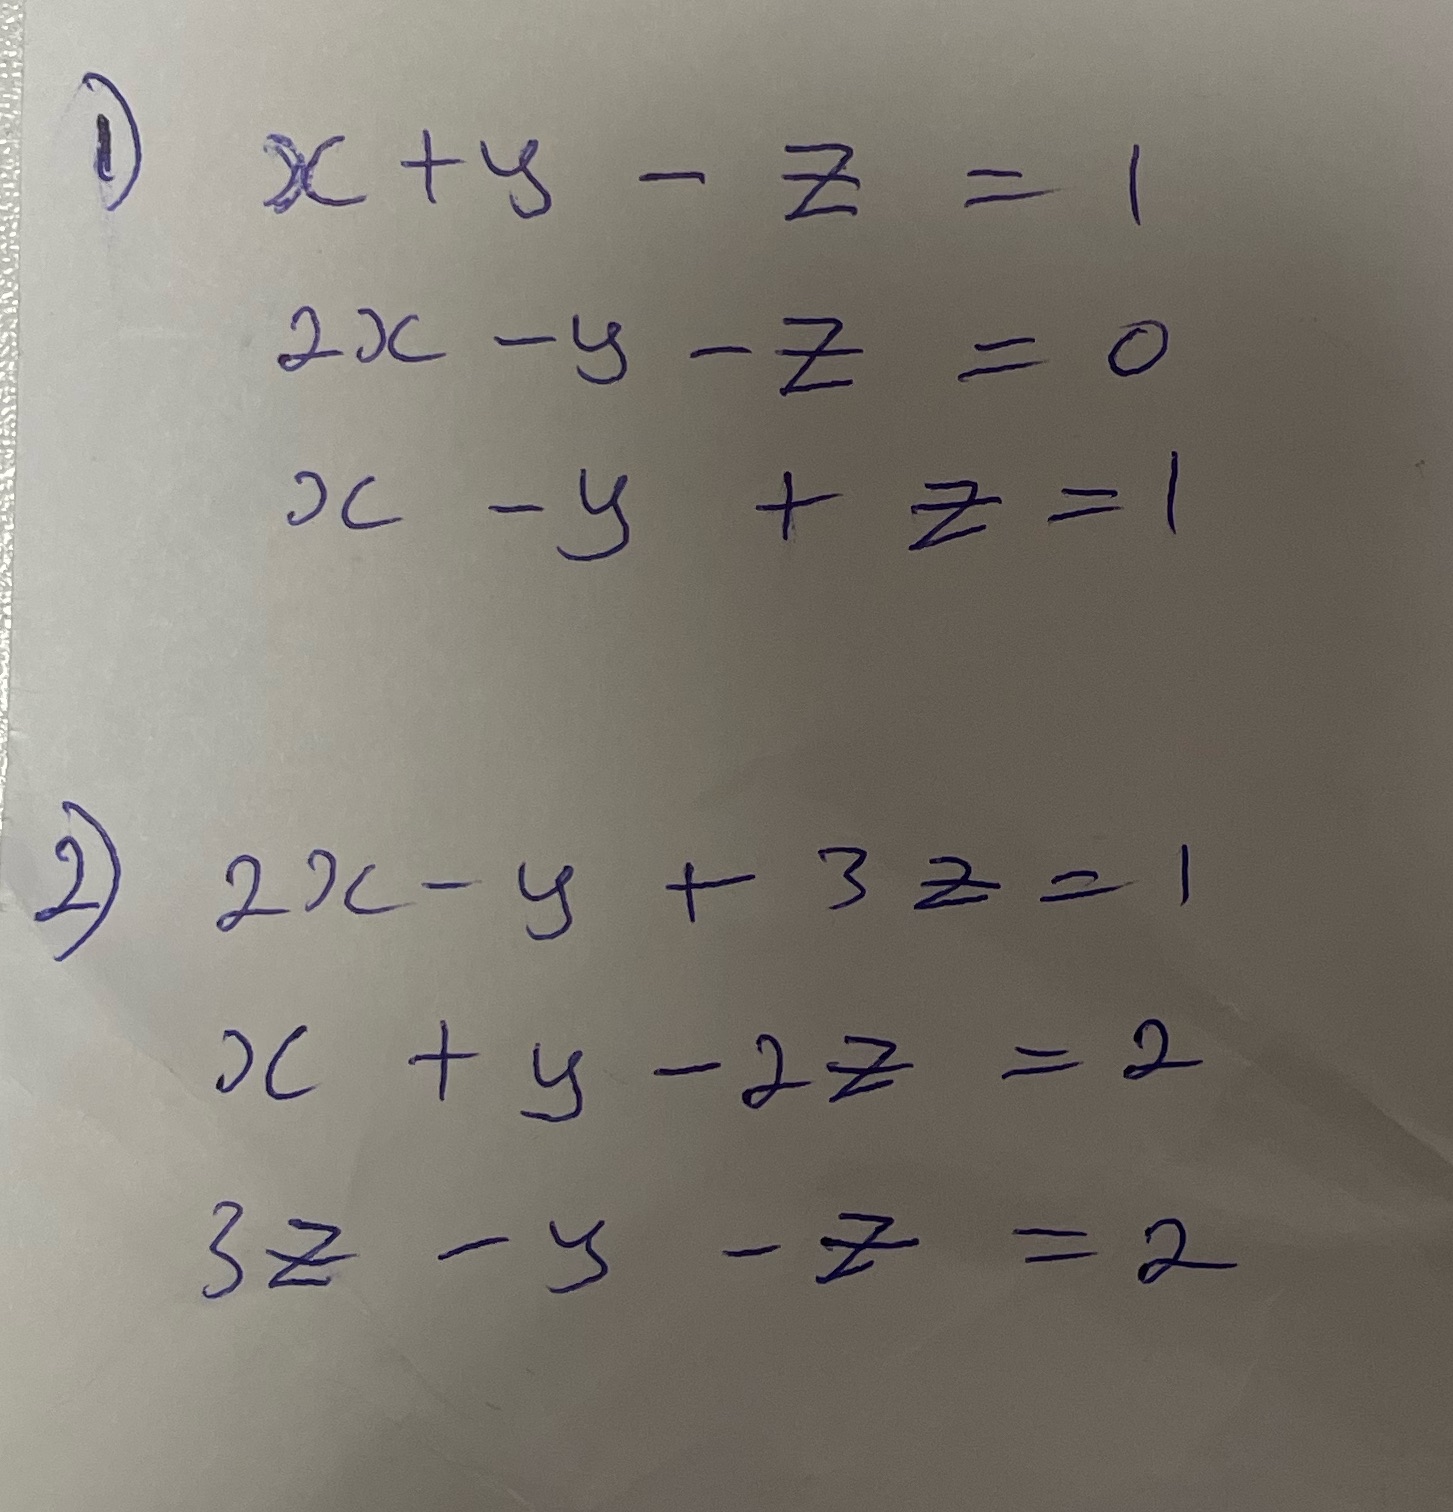 1) x + y - z = 1
2x - y - z = 0
x - y + z = 1
2) 2x - y + 3z = 1
x + y - 2z = 2
3z - y - z = 2